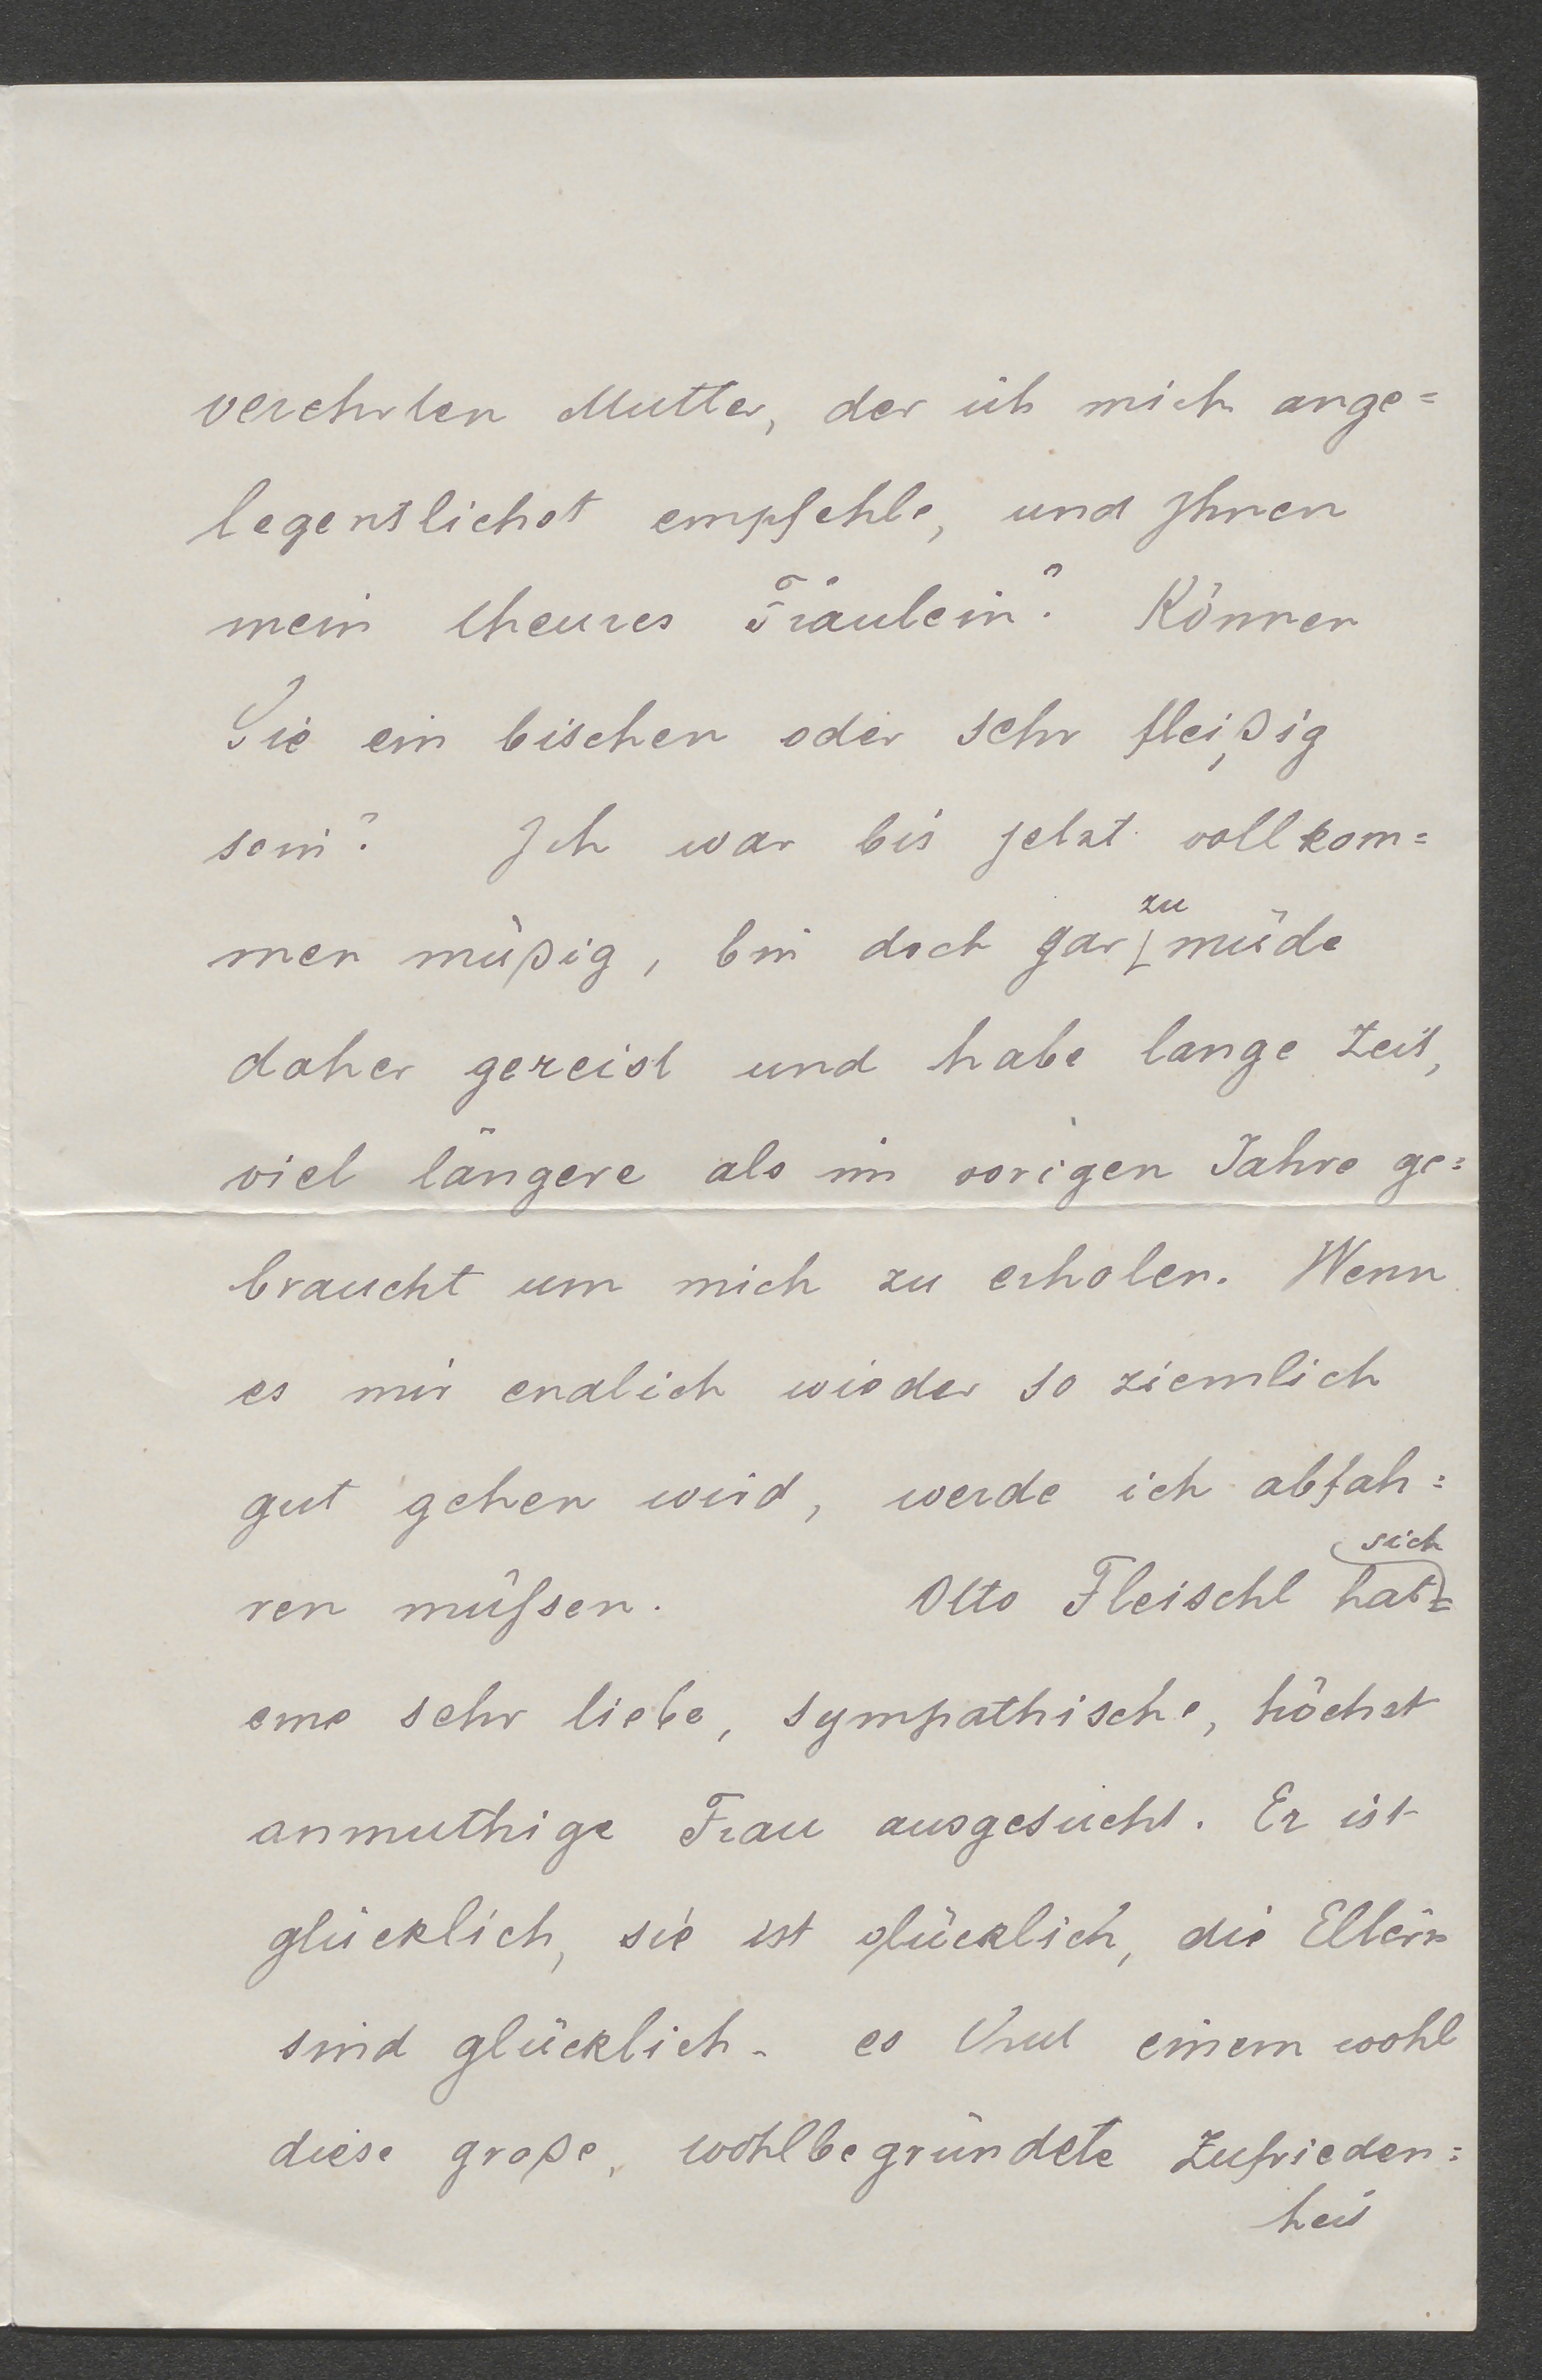 verehrten Mutter, der ich mich ange=
legentlichst empfehle, und Ihnen
mein theures Fräulein? Können
Sie ein bischen oder sehr fleißig
sein? Ich war bis jetzt vollkom=
men müßig, bin doch gar zu müde
daher gereist und habe lange Zeit,
viel längere als im vorigen Jahre ge=
braucht um mich zu erholen. Wenn
es mir endlich wieder so ziemlich
gut gehen wird, werde ich abfah=
ren müssen. Otto Fleischl hat sich
eine sehr liebe, sympathische, höchst
anmuthige Frau ausgesucht. Er ist
glücklich, sie ist glücklich, die Eltern
sind glücklich. es thut einem wohl
diese große, wohlbegründete Zufrieden=
heit